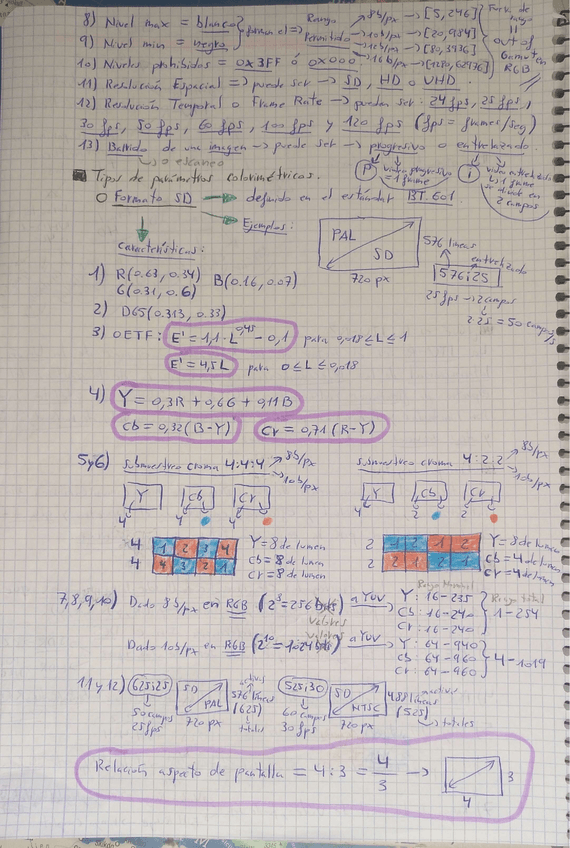 8) Nivel max = blanco
9) Nivel min = negro
forman el => Rango Permitido
8b/px -> [5,246]
10b/px -> [20,984]
12b/px -> [80,3936]
16b/px -> [1280,62976]
Fuera de rango
||
out of Gamut en RGB
10) Niveles prohibidos = 0x3FF ó 0x000
11) Resolución Espacial => puede ser -> SD, HD o UHD.
12) Resolución Temporal o Frame Rate -> puedan ser: 24 fps, 25 fps,
30 fps, 50 fps, 60 fps, 100 fps y 120 fps (fps = frames/seg)
13) Barrido de una imagen -> puede ser -> progresivo o entrelazado.
o escaneo
P
video progresivo = 1 frame
i
video entrelazado
1 frame se divide en 2 campos
Tipos de parámetros colorimétricos.
O Formato SD -> definido en el estándar BT.601
Ejemplos:
Características:
PAL
SD
720 px
576 líneas
entrelazado
576i25
25 fps -> 2 campos
2·25 = 50 campos/s
1) R(0.63, 0.34) B(0.16, 0.07)
G(0.31, 0.6)
2) D65(0.313, 0.33)
3) OETF: E' = 1,1·L^0,45 - 0,1 para 0,018 ≤ L ≤ 1
E' = 4,5L para 0 ≤ L ≤ 0,018
4) Y = 0,3R + 0,6G + 0,11B
Cb = 0,32(B-Y) Cr = 0,71(R-Y)
5y6) submuestreo croma 4:4:4 8b/px 10b/px
submuestreo croma 4:2:2 8b/px 10b/px
Y Cb Cr
4 4 4
Y Cb Cr
4 2 2
4 1 2 3 4
4 4 3 2 1
Y = 8 de lumen
Cb = 8 de lumen
Cr = 8 de lumen
2 1 2 1 2
2 2 1 2 1
Y = 8 de lumen
Cb = 4 de lumen
Cr = 4 de lumen
7,8,9,10) Dado 8b/px en RGB (2^8 = 256 valores) a YUV
Rango Nominal
Rango Total
Y: 16-235
Cb: 16-240
Cr: 16-240
1-254
Dado 10b/px en RGB (2^10 = 1024 valores) a YUV
Y: 64-940
Cb: 64-960
Cr: 64-960
4-1019
11 y 12) 625i25
50 campos
25 fps
SD
PAL
720 px
576 líneas activas
(625)
totales
525i30
60 campos
30 fps
SD
NTSC
720 px
488 líneas activas
(525)
totales
Relación aspecto de pantalla = 4:3 = 4/3 ->
3
4